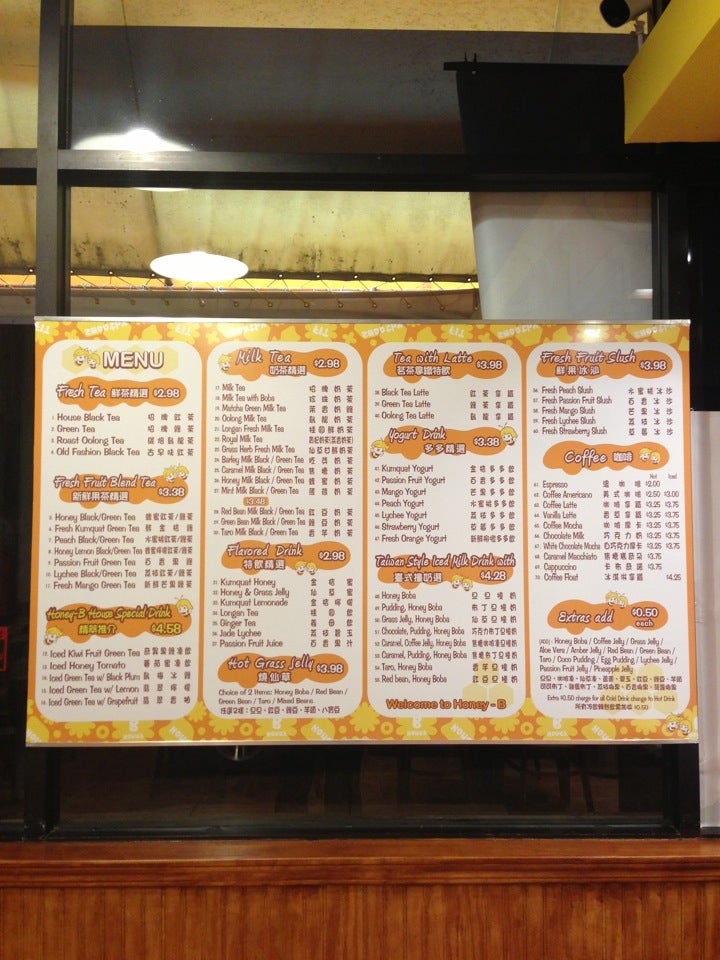 MENU
Fresh Tea 鮮茶精選 $2.98
1. House Black Tea 招牌紅茶
2. Green Tea 招牌綠茶
3. Roast Oolong Tea 碳焙烏龍茶
4. Old Fashion Black Tea 古早味紅茶
Fresh Fruit Blend Tea
新鮮果茶精選 $3.38
5. Honey Black/Green Tea 蜂蜜紅茶/綠茶
6. Fresh Kumquat Green Tea 鮮金桔綠
7. Peach Black/Green Tea 水蜜桃紅茶/綠茶
8. Honey Lemon Black/Green Tea 蜂蜜檸檬紅茶/綠茶
9. Passion Fruit Green Tea 百香果綠
10. Lychee Black/Green Tea 荔枝紅茶/綠茶
11. Fresh Mango Green Tea 新鮮芒果綠茶
Honey-B House Special Drink
精萃推介 $4.58
12. Iced Kiwi Fruit Green Tea 奇異果綠凍飲
13. Iced Honey Tomato 蕃茄蜜凍飲
14. Iced Green Tea w/ Black Plum 烏梅冰綠
15. Iced Green Tea w/ Lemon 翡翠檸檬
16. Iced Green Tea w/ Grapefruit 翡翠君柚
Milk Tea
奶茶精選 $2.98
17. Milk Tea 招牌奶茶
18. Milk Tea with Boba 珍珠奶茶
19. Matcha Green Milk Tea 茉香奶綠
20. Oolong Milk Tea 烏龍奶茶
21. Longan Fresh Milk Tea 桂圓鮮奶茶
22. Royal Milk Tea
23. Grass Herb Fresh Milk Tea 仙草甘鮮奶茶
24. Barley Milk Black / Green Tea 奶茶
25. Caramel Milk Black / Green Tea 焦糖奶茶
26. Honey Milk Black / Green Tea 蜂蜜奶茶
27. Mint Milk Black / Green Tea 薄荷奶茶
$3.48
28. Red Bean Milk Black / Green Tea 紅豆奶茶
29. Green Bean Milk Black / Green Tea 綠豆奶茶
30. Taro Milk Black / Green Tea 香芋奶茶
Flavored Drink
特飲精選 $2.98
31. Kumquat Honey 金桔蜜
32. Honey & Grass Jelly 仙草蜜
33. Kumquat Lemonade 金桔檸檬
34. Longan Tea 桂圓茶
35. Ginger Tea 薑母茶
36. Jade Lychee 荔枝碧玉
37. Passion Fruit Juice 百香果汁
Hot Grass Jelly
燒仙草 $3.98
Choice of 2 Items: Honey Boba / Red Bean /
Green Bean / Taro / Mixed Beans
任選2樣：豆豆、紅豆、綠豆、芋頭、八寶豆
Tea with Latte
茗茶拿鐵特飲 $3.98
38. Black Tea Latte 紅茶拿鐵
39. Green Tea Latte 綠茶拿鐵
40. Oolong Tea Latte 烏龍拿鐵
Yogurt Drink
多多精選 $3.38
41. Kumquat Yogurt 金桔多多飲
42. Passion Fruit Yogurt 百香多多飲
43. Mango Yogurt 芒果多多飲
44. Peach Yogurt 水蜜多多飲
45. Lychee Yogurt 荔枝多多飲
46. Strawberry Yogurt 草莓多多飲
47. Fresh Orange Yogurt 新鮮柳橙多多飲
Taiwan Style Iced Milk Drink with
臺式撞奶選 $4.28
48. Honey Boba 豆豆撞奶
49. Pudding, Honey Boba 布丁豆撞奶
50. Grass Jelly, Honey Boba 仙草豆撞奶
51. Chocolate, Pudding, Honey Boba 巧克力布丁豆撞奶
52. Caramel, Coffee Jelly, Honey Boba 焦糖咖啡凍豆撞奶
53. Caramel, Pudding, Honey Boba 焦糖布丁豆撞奶
54. Taro, Honey Boba 香芋豆撞奶
55. Red bean, Honey Boba 紅豆豆撞奶
Welcome to Honey - B
Fresh Fruit Slush
鮮果冰沙 $3.98
56. Fresh Peach Slush 水蜜桃冰沙
57. Fresh Passion Fruit Slush 百香冰沙
58. Fresh Mango Slush 芒果冰沙
59. Fresh Lychee Slush 荔枝冰沙
60. Fresh Strawberry Slush 草莓冰沙
Coffee 咖啡
Hot Iced
61. Espresso 濃咖啡 $2.00
62. Coffee Americano 美式咖啡 $2.50 $3.00
63. Coffee Latte 咖啡拿鐵 $3.25 $3.75
64. Vanilla Latte 香草拿鐵 $3.25 $3.75
65. Coffee Mocha 咖啡摩卡 $3.25 $3.75
66. Chocolate Milk 巧克力奶 $3.25 $3.75
67. White Chocolate Mocha 白巧克力摩卡 $3.25 $3.75
68. Caramel Macchiato 焦糖瑪奇朵 $3.25 $3.75
69. Cappuccino 卡布奇諾 $3.25 $3.75
70. Coffee Float 冰淇淋拿鐵 $4.25
Extras add $0.50 each
(ADD): Honey Boba / Coffee Jelly / Grass Jelly /
Aloe Vera / Amber Jelly / Red Bean / Green Bean
/ Taro / Coco Pudding / Egg Pudding / Lychee Jelly /
Passion Fruit Jelly / Pineapple Jelly
Extra $0.50 charge for all Cold Drink change to Hot Drink
所有冷飲轉熱飲需加收 $0.50